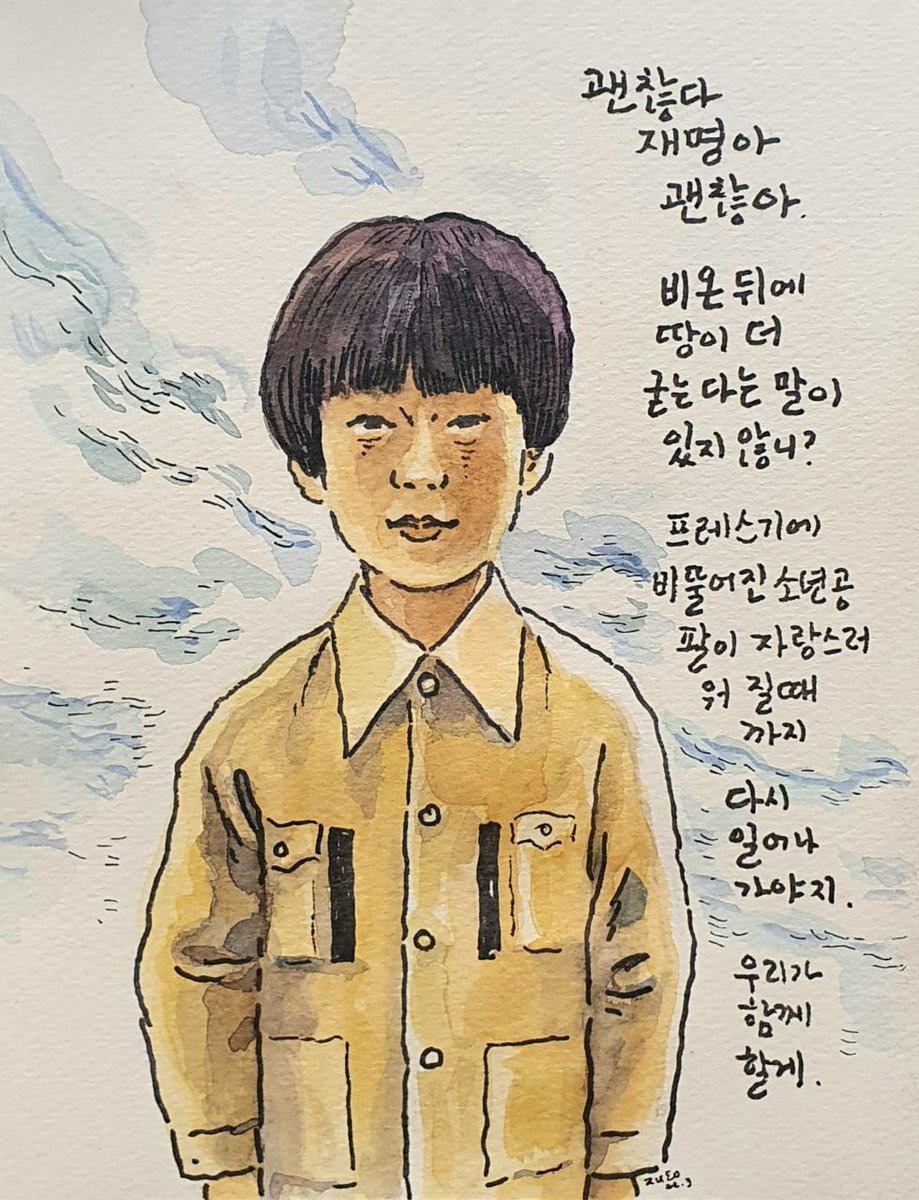 괜찮다
재명아
괜찮아.
비온 뒤에
땅이 더
굳는다는 말이
있지 않니?
프레스기에
비뚤어진 소년공
팔이 자랑스러
워 질때
까지
다시
일어나
가야지.
우리가
함께
할게.